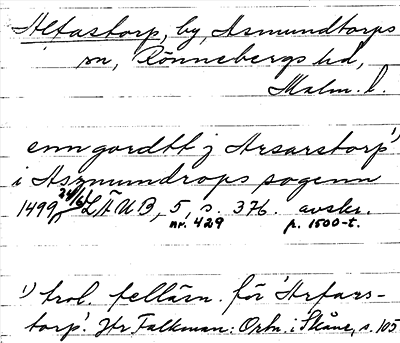 Alfastorp, by, Asmundtorps
sn, Rönnebergs hd,
Malm. l.
enn gordtt j Arsarstorp¹⁾
i Aszmundrops sogenn
1499 24/6 LÄUB, 5, s. 376. avskr.
nr. 429 p. 1500-t.
¹⁾ trol. fellärn. för 'Arfars-
torp'. Jfr Falkman: Ortn. i Skåne, s. 105